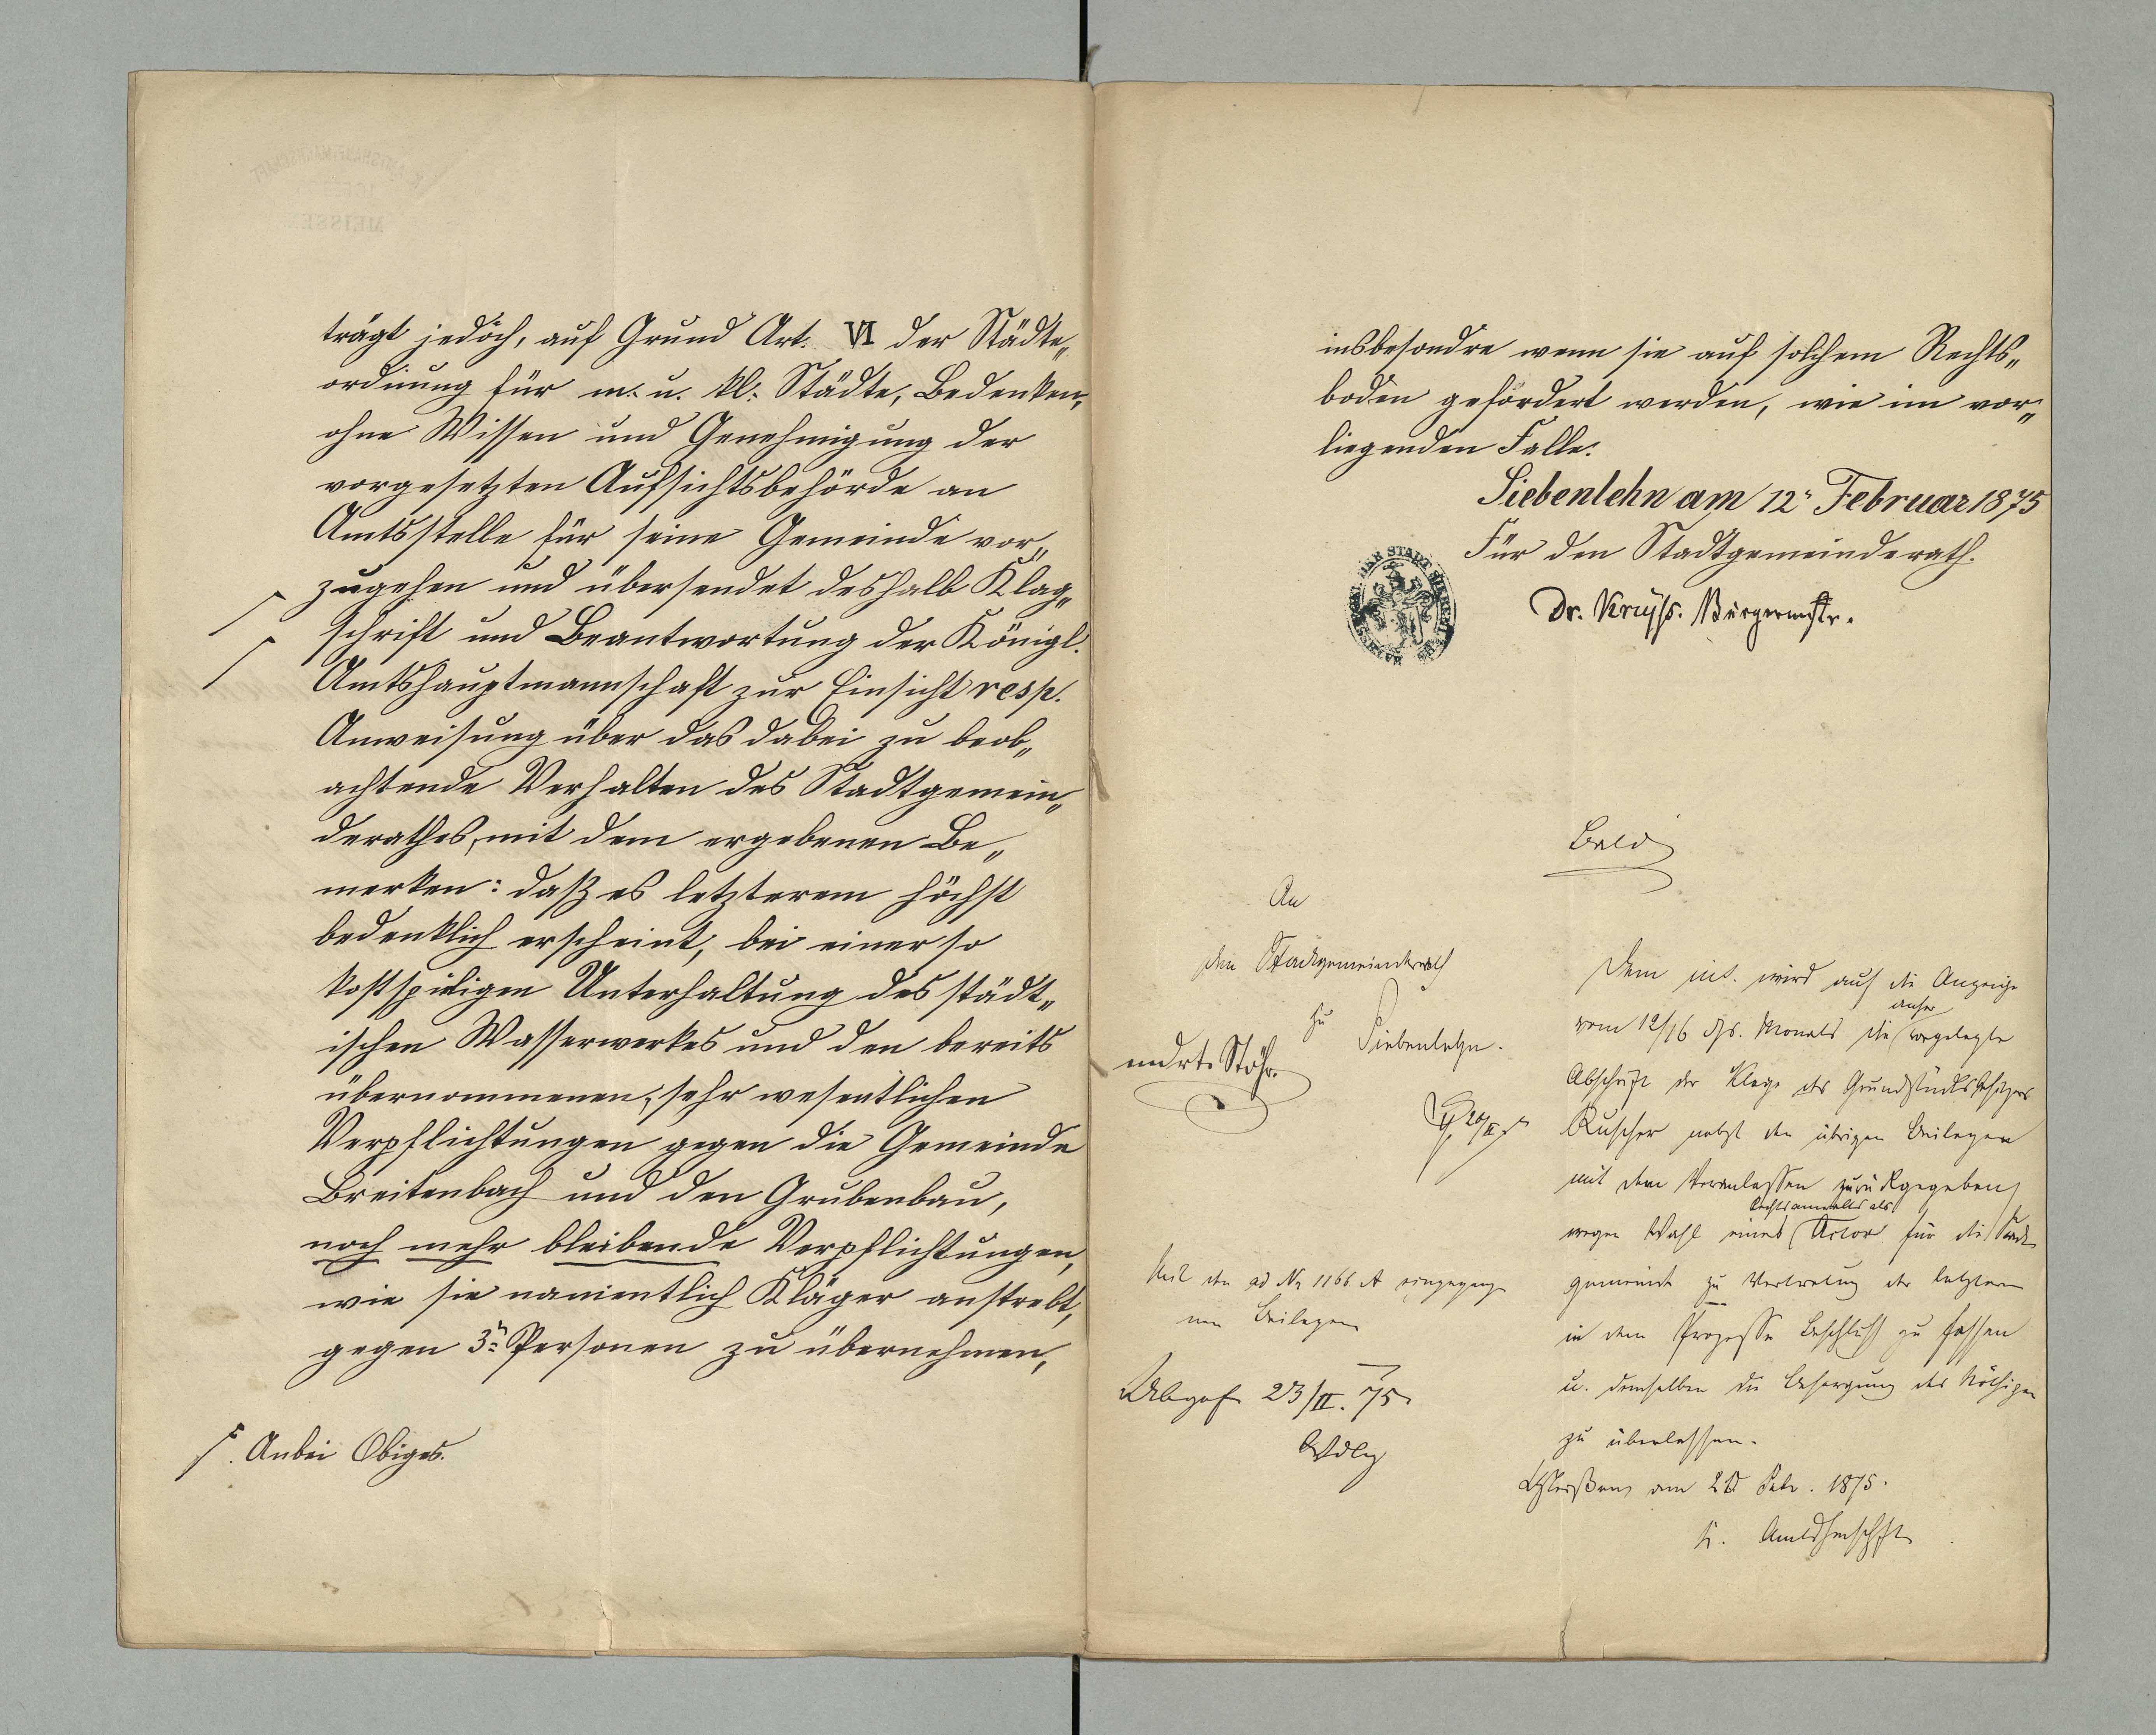 trägt jedoch, auf Grund Art. VI der Städte„
ordnung für m. u. kl. Städte, Bedenken,
ohne Wissen und Genehmigung der
vorgesetzten Aufsichtsbehörde an
Amtsstelle für seine Gemeinde vor„
zugehen und übersendet deshalb Klag„
schrift und Beantwortung der Königl.
Amtshauptmannschaft zur Einsicht resp.
Anweisung über das dabei zu beob„
achtende Verhalten des Stadtgemein„
derathes, mit dem ergebenen Be„
merken: daß es letzterem höchst
bedenklich erscheint, bei einer so
kostspieligen Unterhaltung des städt„
ischen Wasserwerkes und den bereits
übernommenen, sehr wesentlichen
Verpflichtungen gegen die Gemeinde
Breitenbach und den Grubenbau,
noch mehr bleibende Verpflichtungen,
wie sie namentlich Kläger anstrebt,
gegen 3n Personen zu übernehmen,
Anbei Obiges.
insbesondre wenn sie auf solchem Rechts„
boden gefordert werden, wie im vor„
liegenden Falle.
Siebenlehn am 12. Februar 1875
Für den Stadtgemeinderath.
Dr. Bürgermstr.
Bald
An
den Stadtgemeinderath
zu
Siebenlehn.
mdrt. Stöhr.
20/II
Mit den ad No 1166 A eingegange
nen Beilagen
Abges 23/II. 75
Dem wird auf die Anzeige
anher
vom 12/16 ds. Monats die vorgelegte
Abschrift der Klage des Grundstücksbesitzers
Ruscher nebst den übrigen Beilagen
mit dem Veranlassen zurückgegeben,
Rechtsanwalts als
wegen Wahl eines Actor für die Stadt
gemeinde zu Vertretung der letztern
in dem Prozesse Beschluß zu fassen
u. demselben die Besorgung des Nöthigen
zu überlassen.
Meißen, am Febr. 1875.
K. Amtshmschft